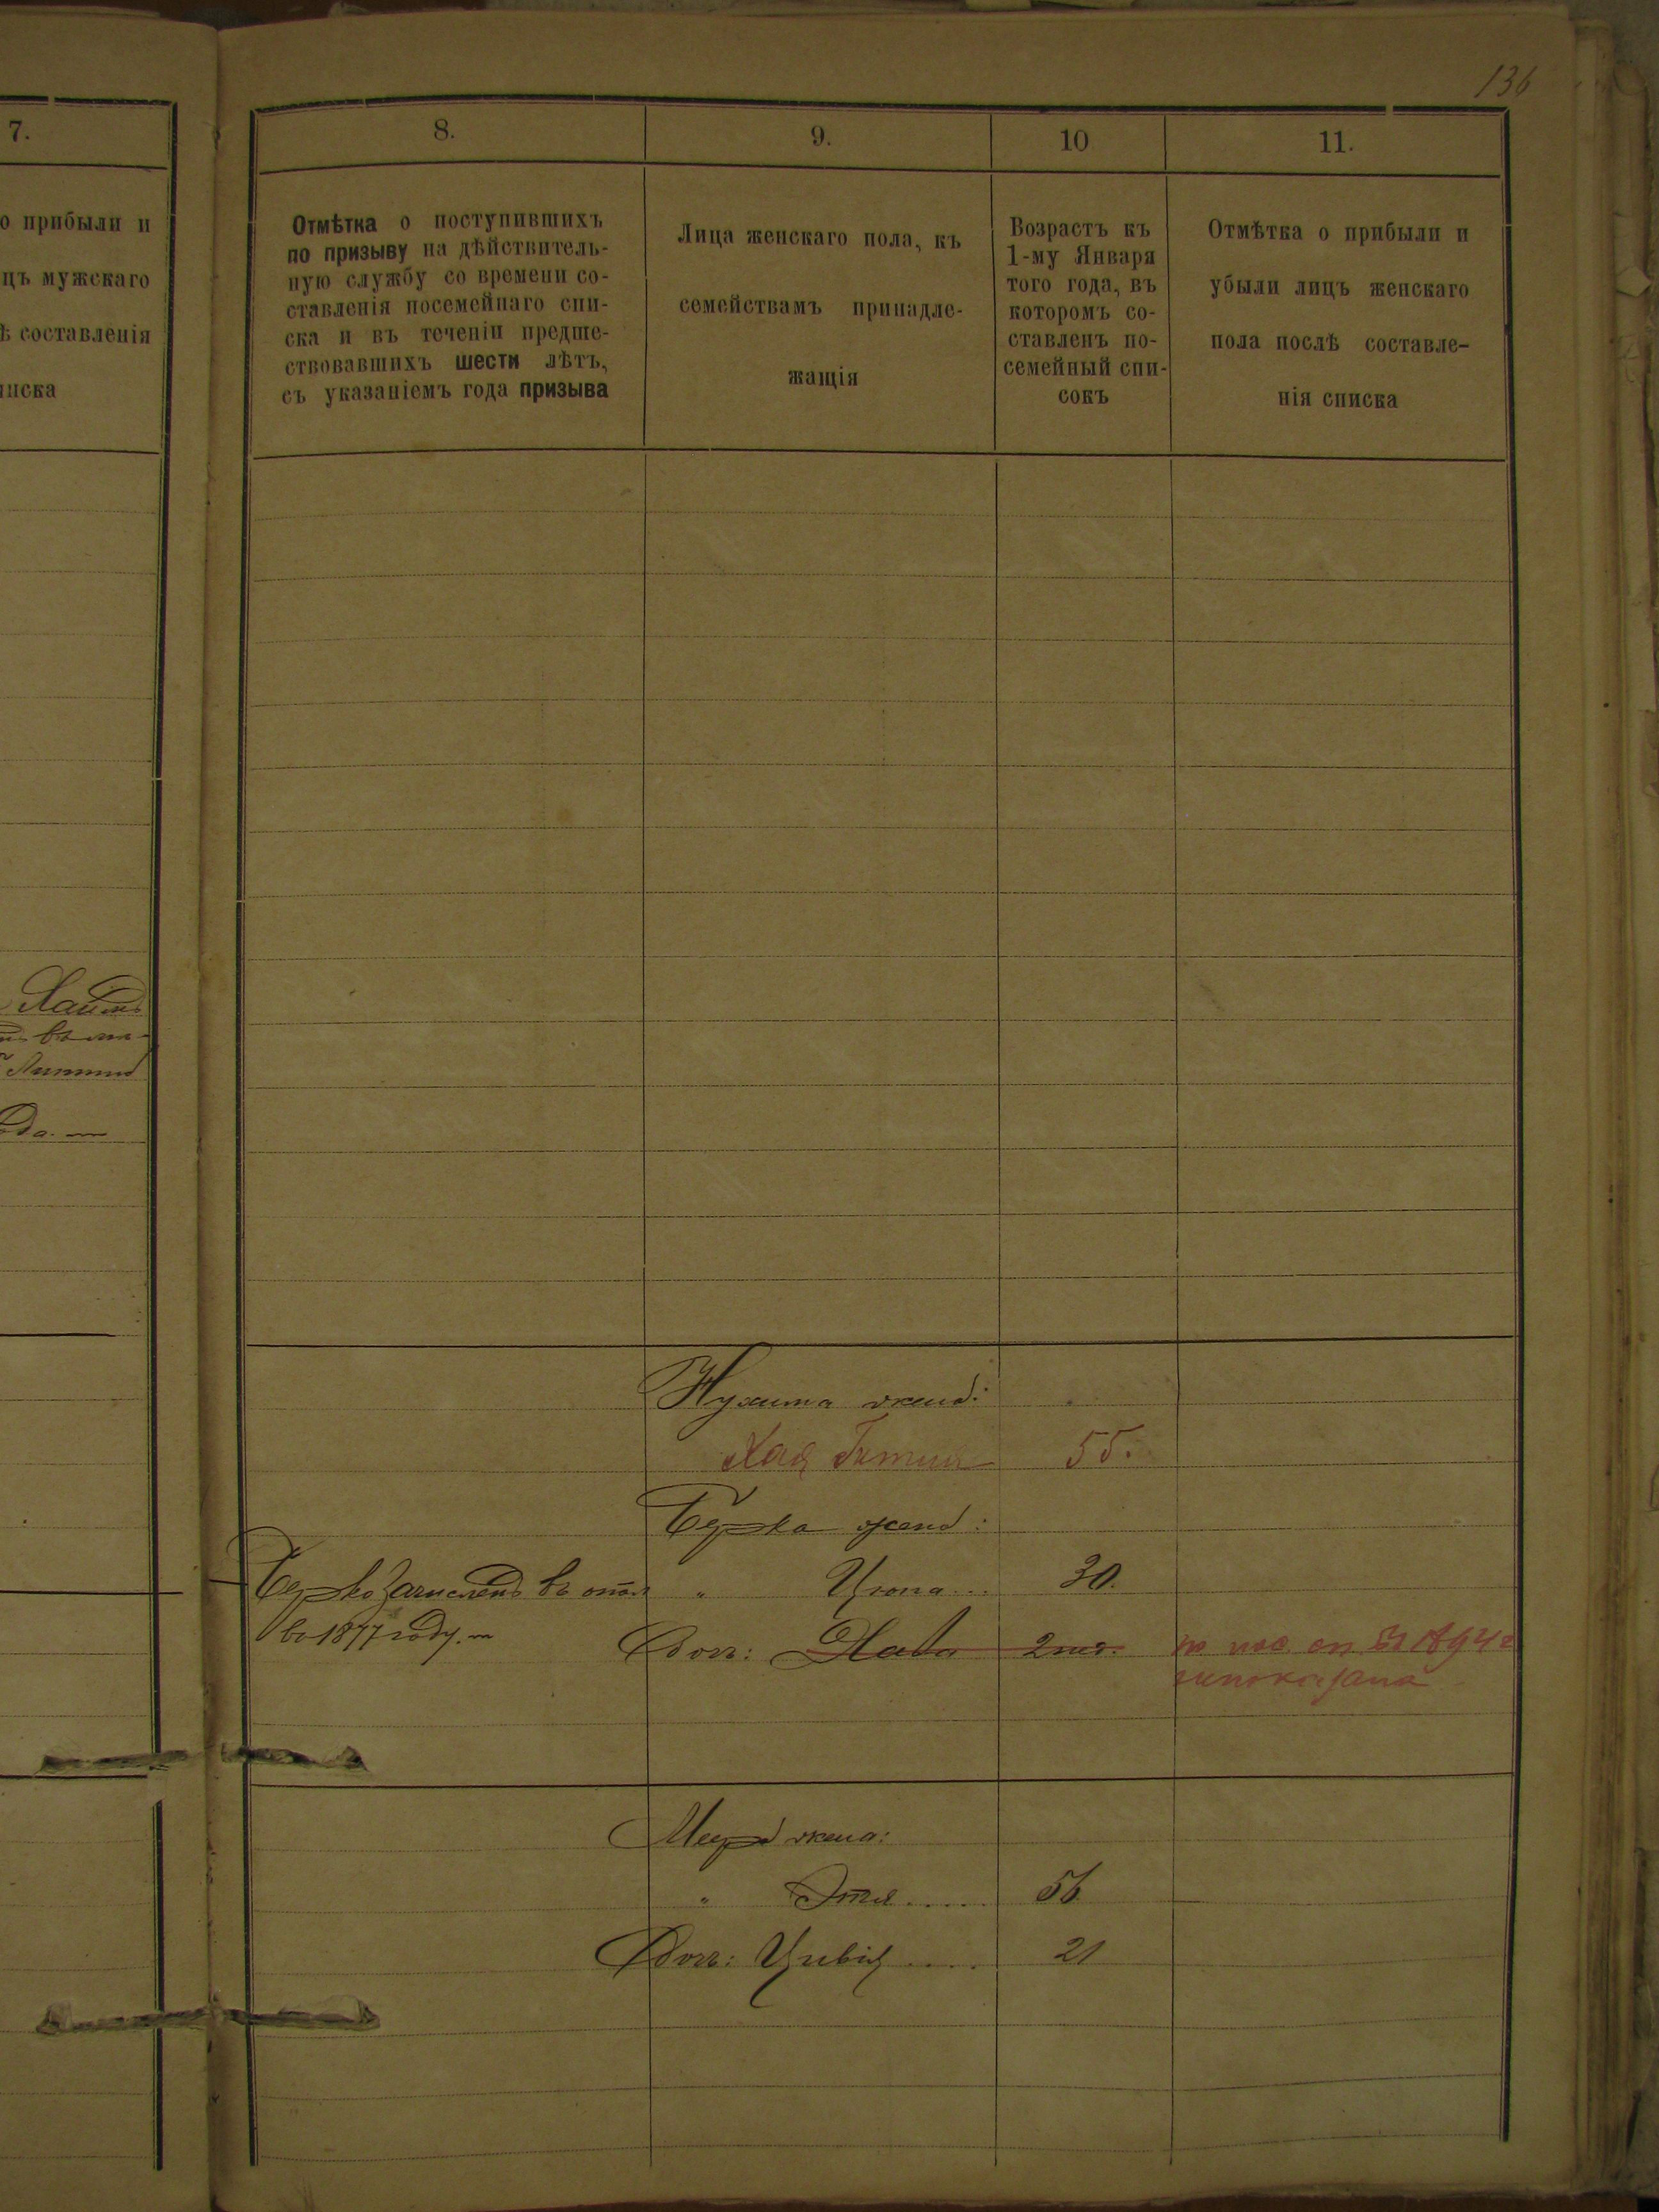 136
7.
о прибыли и
цъ мужскаго
ѣ составленія
писка
Хаимъ
ода.
8.
9.
10
11.
Отмѣтка о поступившихъ
по призыву на дѣйствитель-
ную службу со времени со-
ставленія посемейнаго спи-
ска и въ теченіи предше-
ствовавшихъ шести лѣтъ,
съ указаніемъ года призыва
Лица женскаго пола, къ
семействамъ принадле-
жащія
Возрастъ къ
1-му Января
того года, въ
которомъ со-
ставленъ по-
семейный спи-
сокъ
Отмѣтка о прибыли и
убыли лицъ женскаго
пола послѣ составле-
нія списка
Нухима жена:
Хая 55.
Берка жена:
Берко зачисленъ въ опол " Ципа... 30.
во 1877 году. Дочь: Хава 2 по пос сп 1894 г
непоказана
Меера жена:
" Этля..... 56
Дочь: Цивія .... 21